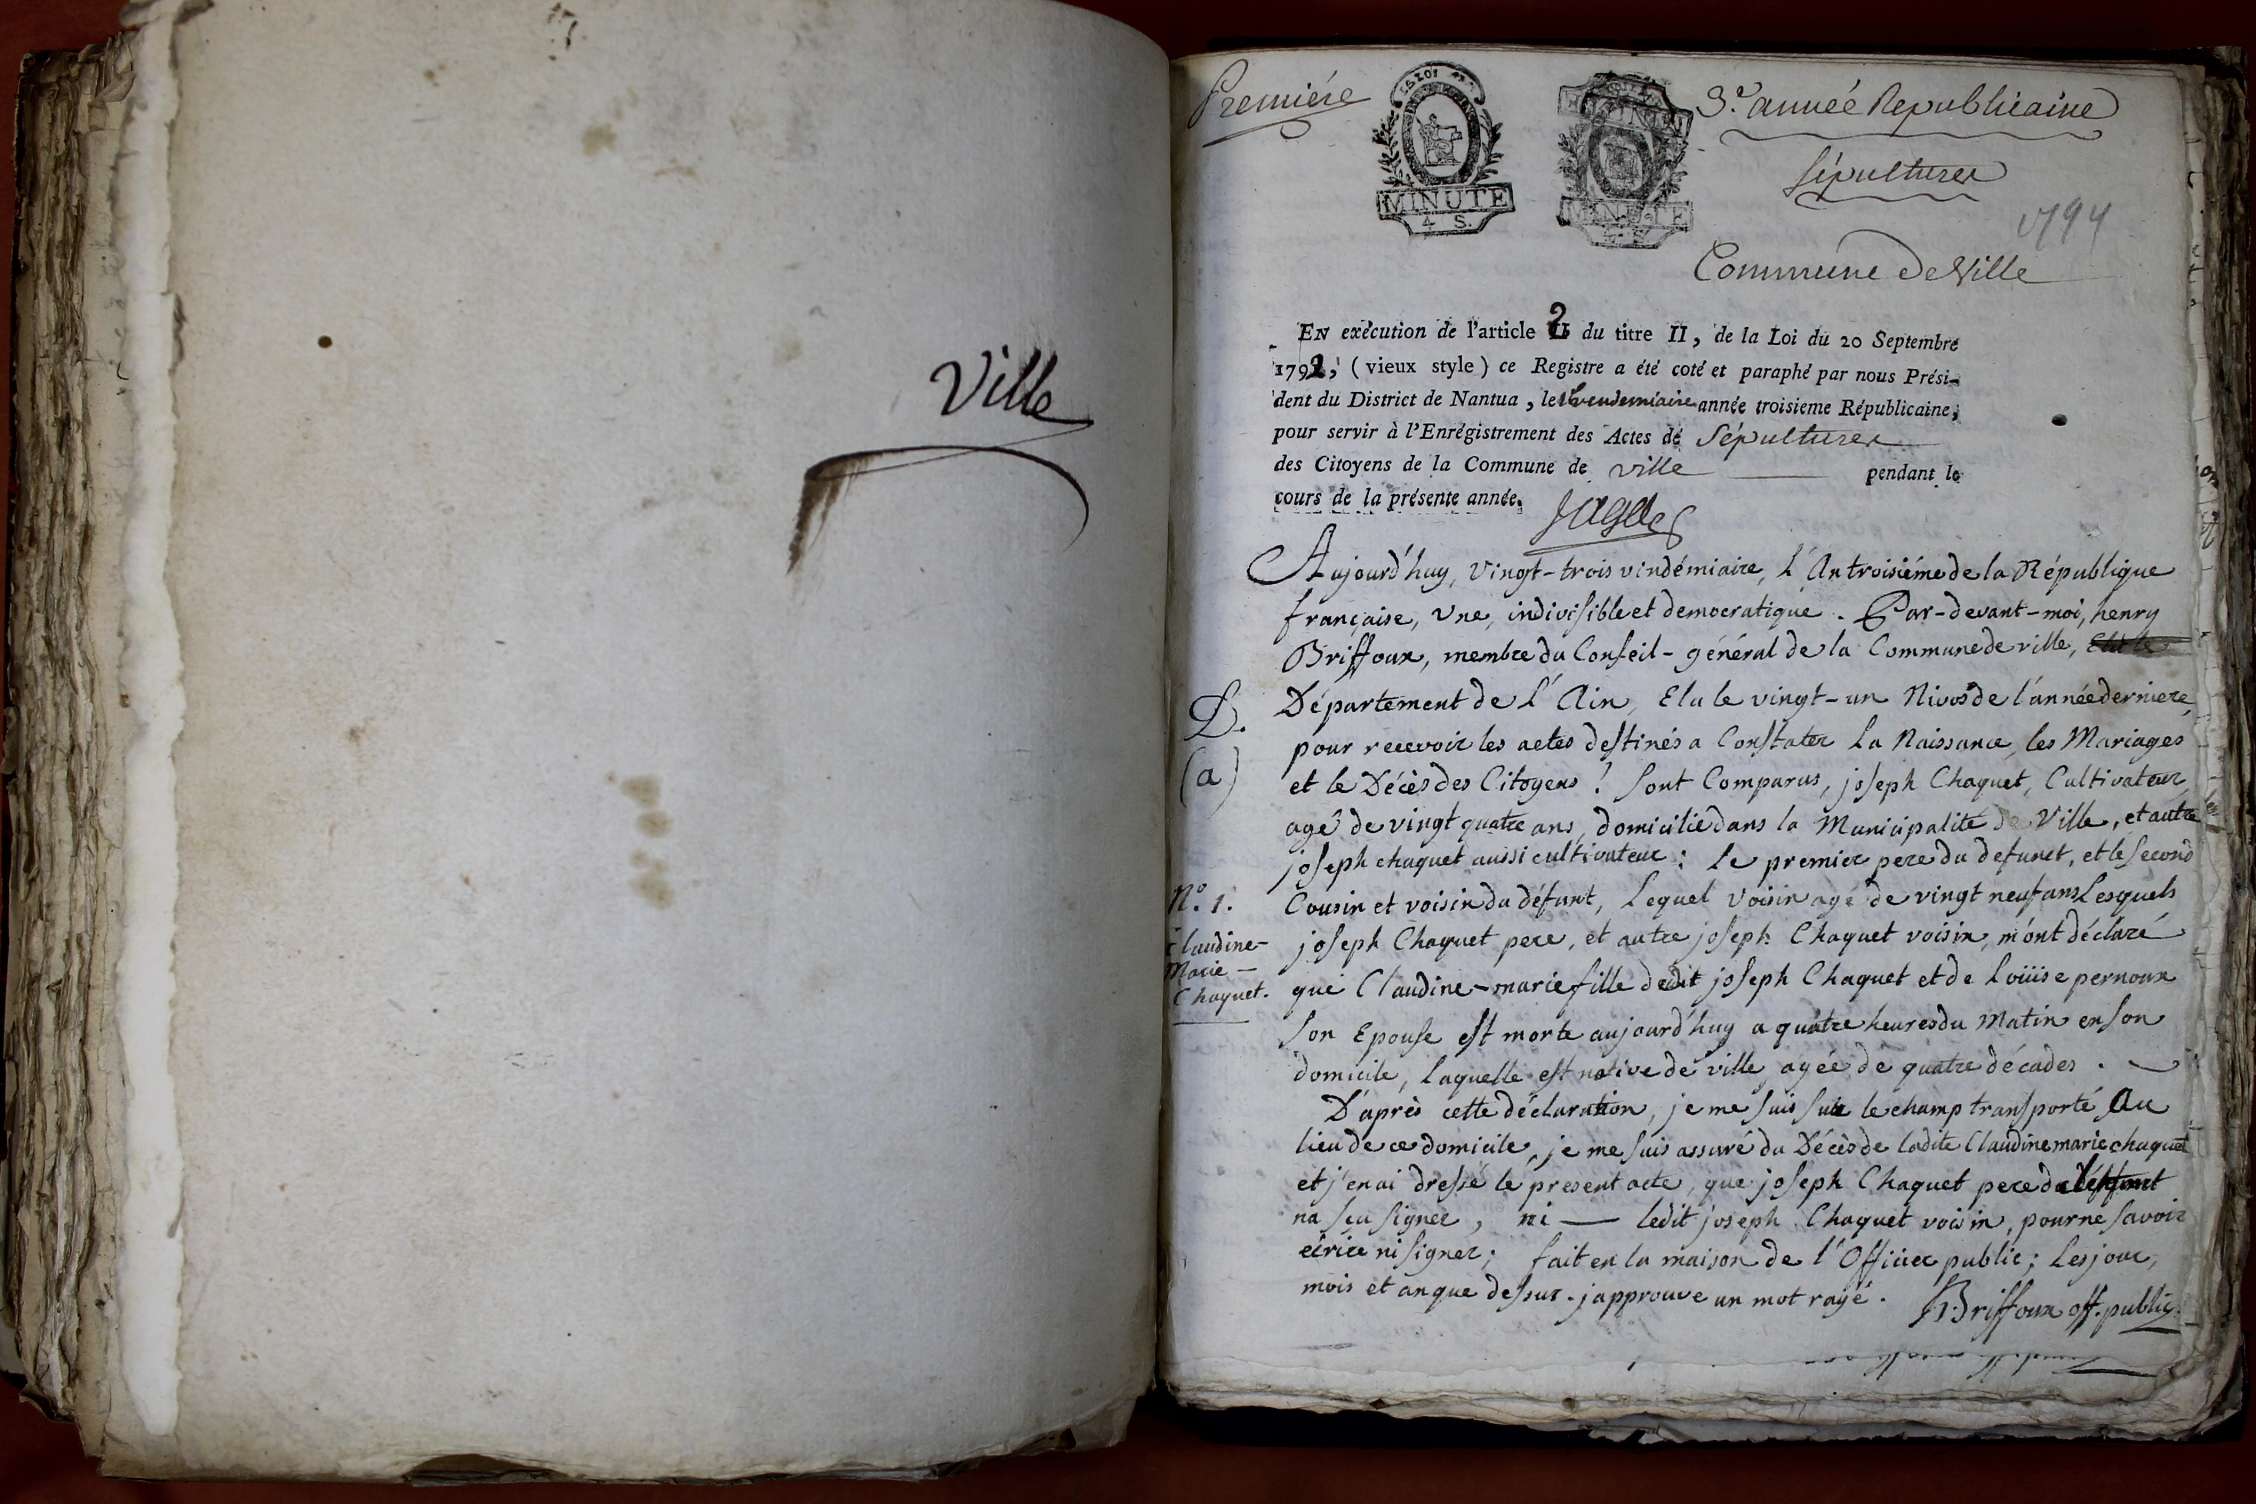 Ville
Premiére
3.e année Republicaine
Sépultures
1794
Commune de Ville
MINUTE
4 S.
MINUTE
4 S.
EN exécution de l'article 2 du titre II, de la Loi du 20 Septembre
1792, (vieux style) ce Registre a été coté et paraphé par nous Prési-
dent du District de Nantua, le vendemiaire année troisieme Républicaine,
pour servir à l'Enrégistrement des Actes de Sépultures
des Citoyens de la Commune de ville pendant le
cours de la présente année.
Aujourd'huy, vingt-trois vindémiaire, L'An troisiéme de la République
française, une, indivisible et democratique. Par-devant-moi, henry
Briffoux, membre du Conseil-général de la Commune de ville,
Département de L'Ain, Elu le vingt-un Nivos de l'année derniere,
pour recevoir les actes destinés a Constater La Naissance, les Mariages
et le Décès des Citoyens! Sont Comparus, joseph Chaquet, Cultivateur,
agé de vingt quatre ans, domicilié dans la Municipalité de Ville, et autre
joseph chaquet aussi cultivateur: le premier pere du defunct, et le second
Cousin et voisin du défunt, Lequel voisin agé de vingt neuf ans Lesquels
joseph Chaquet pere, et autre joseph Chaquet voisin, m'ont déclaré
que Claudine-marie fille dedit joseph Chaquet et de Loüise pernoux
son Epouse est morte aujourd'huy a quatre heures du Matin en son
domicile, laquelle est native de ville, agée de quatre décades.
D'après cette déclaration, je me suis sur le champ transporté au
lieu de ce domicile, je me suis assuré du Décès de ladite Claudine marie chaquet
et j'en ai dressé le present acte, que joseph Chaquet pere du deffunt
na sçu signer, ni — ledit joseph Chaquet voisin, pour ne savoir
ecrire ni signer; fait en la maison de l'Officier public; Les jour,
mois et an que dessus. j'approuve un mot rayé.
Briffoux off. public.
D.
(a)
N.o 1.
Claudine-
Marie-
Chaquet.